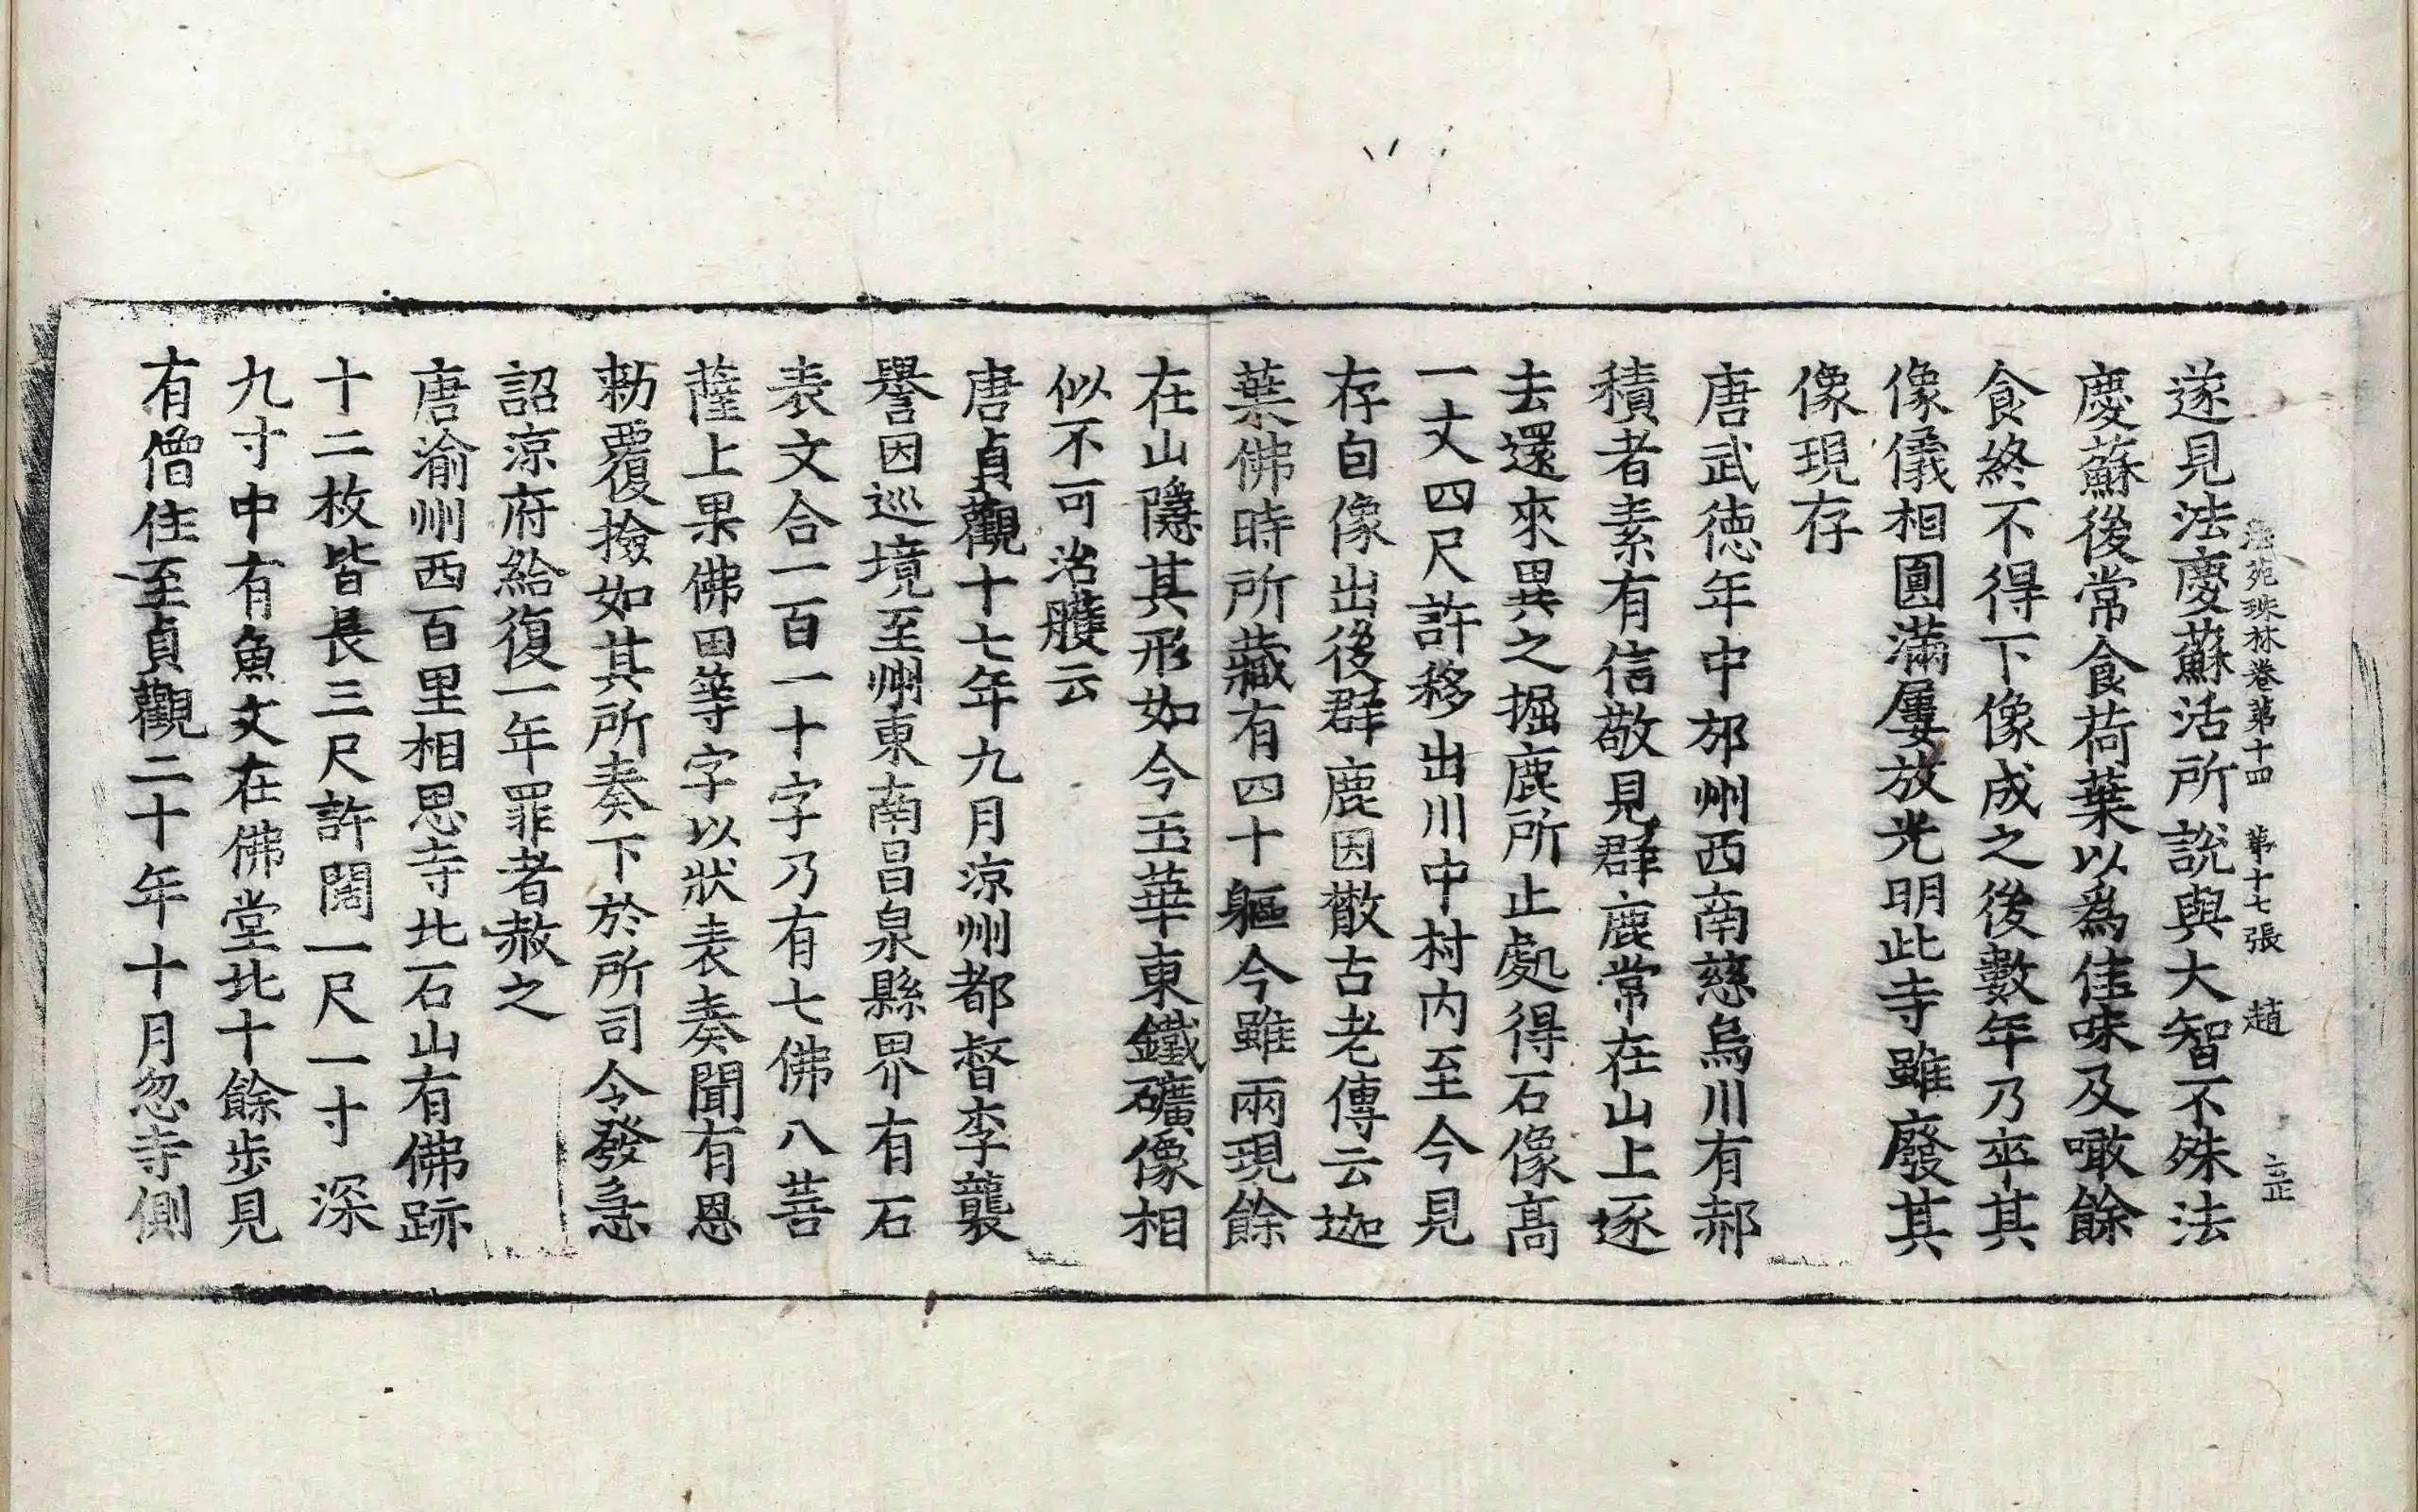 法苑珠林卷第十四 第十七張 趙 正
遂見法慶蘇活所說與大智不殊法
慶蘇後常食荷葉以爲佳味及噉餘
食終不得下像成之後數年乃卒其
像儀相圓滿屢放光明此寺雖廢其
像現存
唐武德年中邠州西南慈烏川有郝
積者素有信敬見群鹿常在山上逐
去還來異之掘鹿所止處得石像高
一丈四尺許移出川中村內至今見
存自像出後群鹿因散古老傳云迦
葉佛時所藏有四十軀今雖兩現餘
在山隱其形如今玉華東鐵礦像相
似不可治護云
唐貞觀十七年九月涼州都督李襲
譽因巡境至州東南昌泉縣界有石
表文合一百一十字乃有七佛八菩
薩上果佛田等字以狀表奏聞有恩
勑覆撿如其所奏下於所司令發急
詔涼府給復一年罪者赦之
唐渝州西百里相思寺北石山有佛跡
十二枚皆長三尺許闊一尺一寸深
九寸中有魚文在佛堂北十餘步見
有僧住至貞觀二十年十月忽寺側